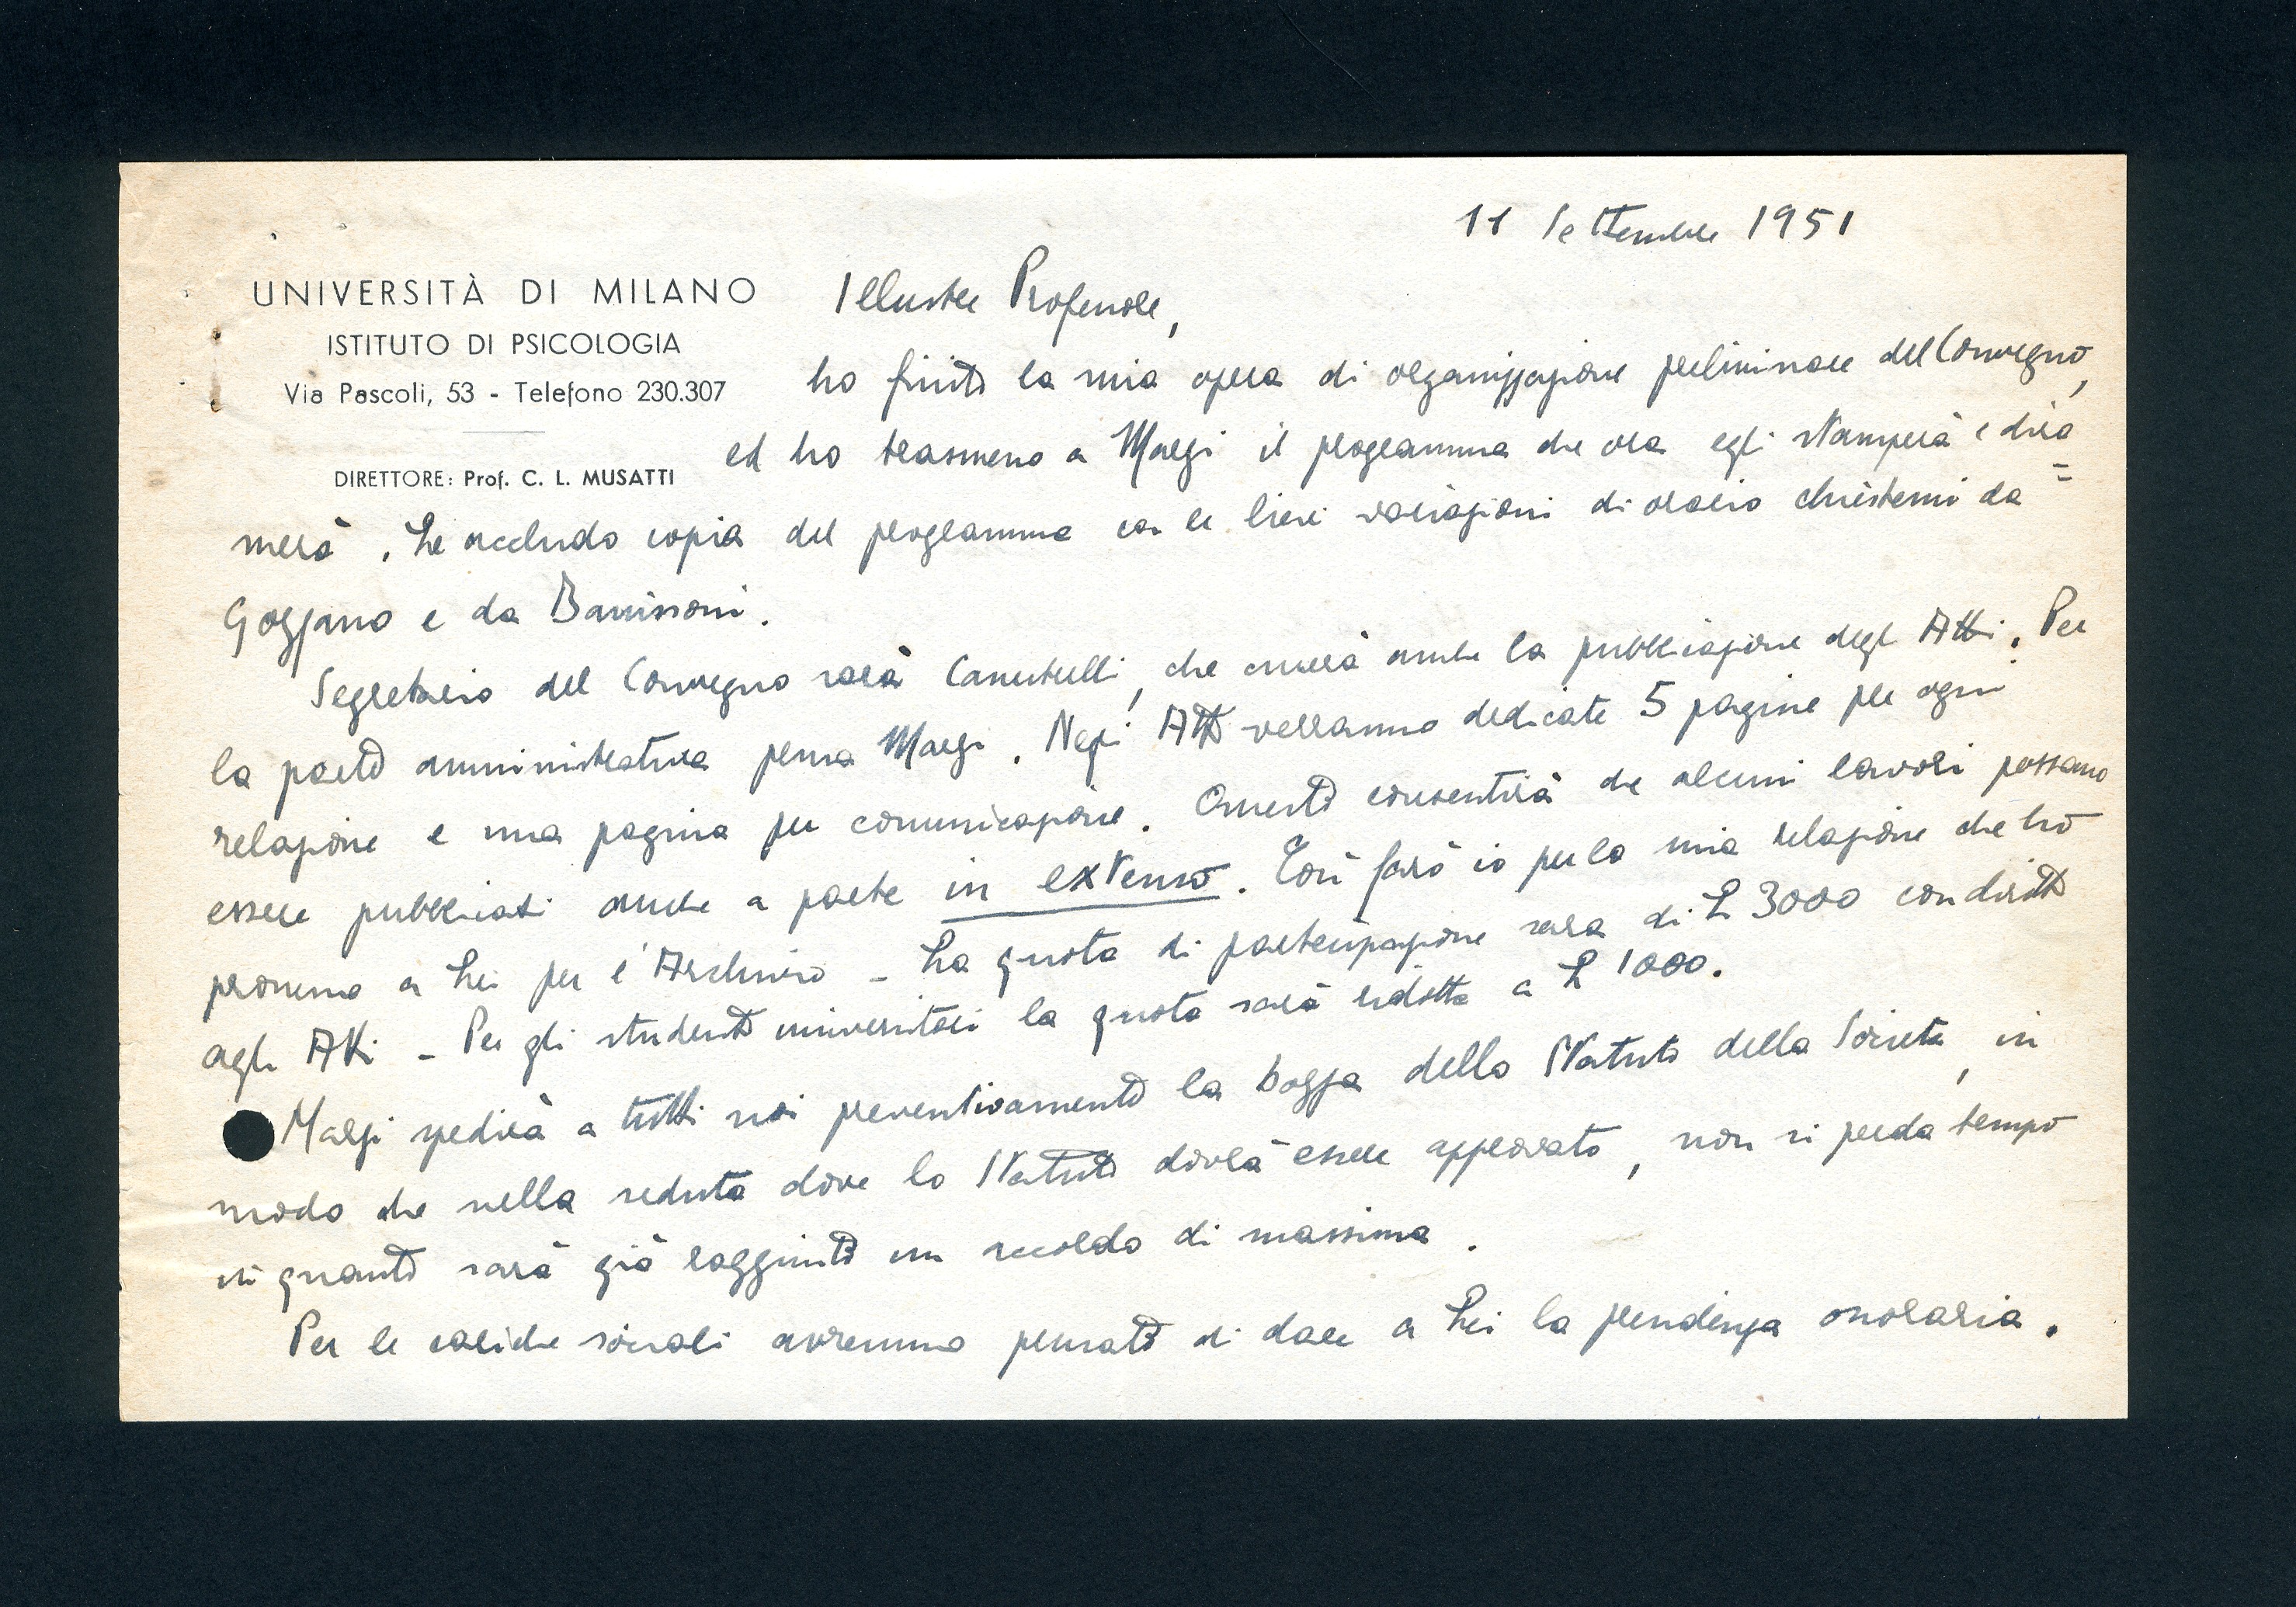 11 Settembre 1951
UNIVERSITÀ DI MILANO
ISTITUTO DI PSICOLOGIA
Via Pascoli, 53 - Telefono 230.307
DIRETTORE: Prof. C. L. MUSATTI
Illustre Professore,
ho finito la mia opera di organizzazione preliminare del Convegno,
ed ho trasmesso a Marzi il programma che ora egli stamperà e dira=
merà. Le accludo copia del programma con le lievi variazioni di orario chiestemi da
Gozzano e da Banissoni.
Segretario del Convegno sarà Canestrelli, che curerà anche la pubblicazione degli Atti. Per
la parte amministrativa pensa Marzi. Negli Atti verranno dedicate 5 pagine per ogni
relazione e una pagina per comunicazione. Questo consentirà che alcuni lavori possano
essere pubblicati anche a parte in extenso. Così farò io per la mia relazione che ho
promesso a Lei per l'Archivio - La quota di partecipazione sarà di L 3000 con diritto
agli Atti - Per gli studenti universitari la quota sarà ridotta a L 1000.
Marzi spedirà a tutti noi preventivamente la bozza dello Statuto della Società, in
modo che nella seduta dove lo Statuto dovrà essere approvato, non si perda tempo
in quanto sarà già raggiunto un accordo di massima.
Per le cariche sociali avremmo pensato di dare a Lei la presidenza onoraria.